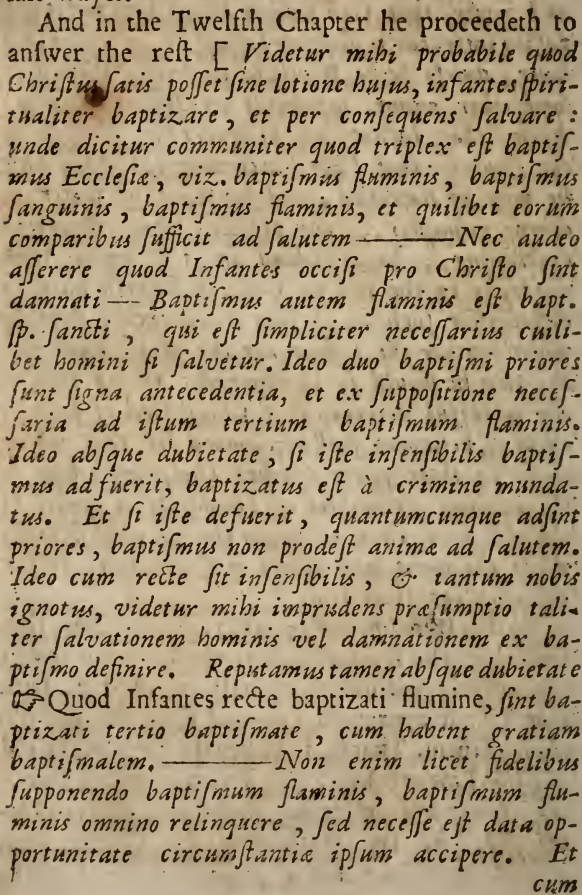 And in the Twelfth Chapter he proceedeth to
anſwer the reſt [ Videtur mihi probabile quod
Chriſtus ſatis poſſet ſine lotione hujus, infantes ſpiri-
tualiter baptizare, et per conſequens ſalvare :
unde dicitur communiter quod triplex eſt baptiſ-
mus Eccleſiæ, viz. baptiſmus fluminis, baptiſmus
ſanguinis, baptiſmus flaminis, et quilibet eorum
comparibus ſufficit ad ſalutem———Nec audeo
aſſerere quod Infantes occiſi pro Chriſto ſint
damnati — Baptiſmus autem flaminis eſt bapt.
ſp. ſancti , qui eſt ſimpliciter neceſſarius cuili-
bet homini ſi ſalvetur. Ideo duo baptiſmi priores
ſunt ſigna antecedentia, et ex ſuppoſitione neceſ-
ſaria ad iſtum tertium baptiſmum flaminis.
Ideo abſque dubietate ; ſi iſte inſenſibilis baptiſ-
mus adfuerit, baptizatus eſt à crimine munda-
tus. Et ſi iſte defuerit, quantumcunque adſint
priores, baptiſmus non prodeſt animæ ad ſalutem.
Ideo cum recte ſit inſenſibilis, & tantum nobis
ignotus, videtur mihi imprudens præſumptio tali-
ter ſalvationem hominis vel damnationem ex ba-
ptiſmo definire. Reputamus tamen abſque dubietate
☞Quod Infantes recte baptizati flumine, ſint ba-
ptizati tertio baptiſmate , cum habent gratiam
baptiſmalem.———Non enim licet fidelibus
ſupponendo baptiſmum flaminis, baptiſmum flu-
minis omnino relinquere , ſed neceſſe eſt data op-
portunitate circumſtantiæ ipſum accipere. Et
cum